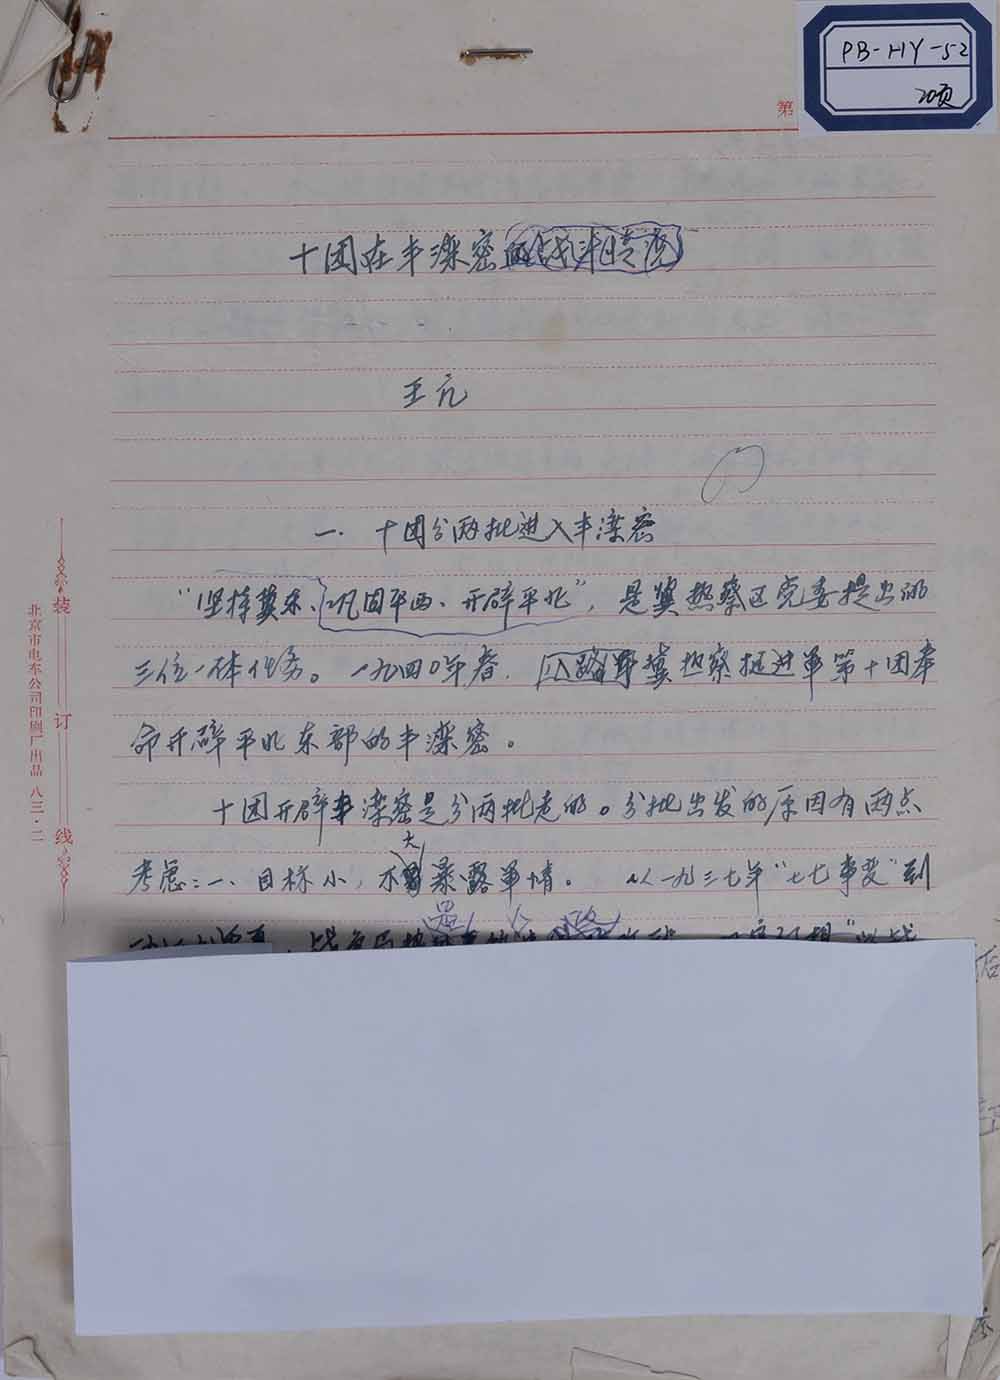 PB-HY-52
20页
第
十团在丰滦密的战斗情况
王亢
一. 十团分两批进入丰滦密
“坚持冀东、巩固平西、开辟平北”, 是冀热察区党委提出的
三位一体任务。一九四〇年春. 八路军冀热察挺进军第十团奉
命开辟平北东部的丰滦密。
十团开辟丰滦密是分两批走的。分批出发的原因有两点
大
考虑:一、目标小, 不易暴露军情。 从一九三七年“七七事变”到
装
订
线
北京市电车公司印刷厂出品 八三·二